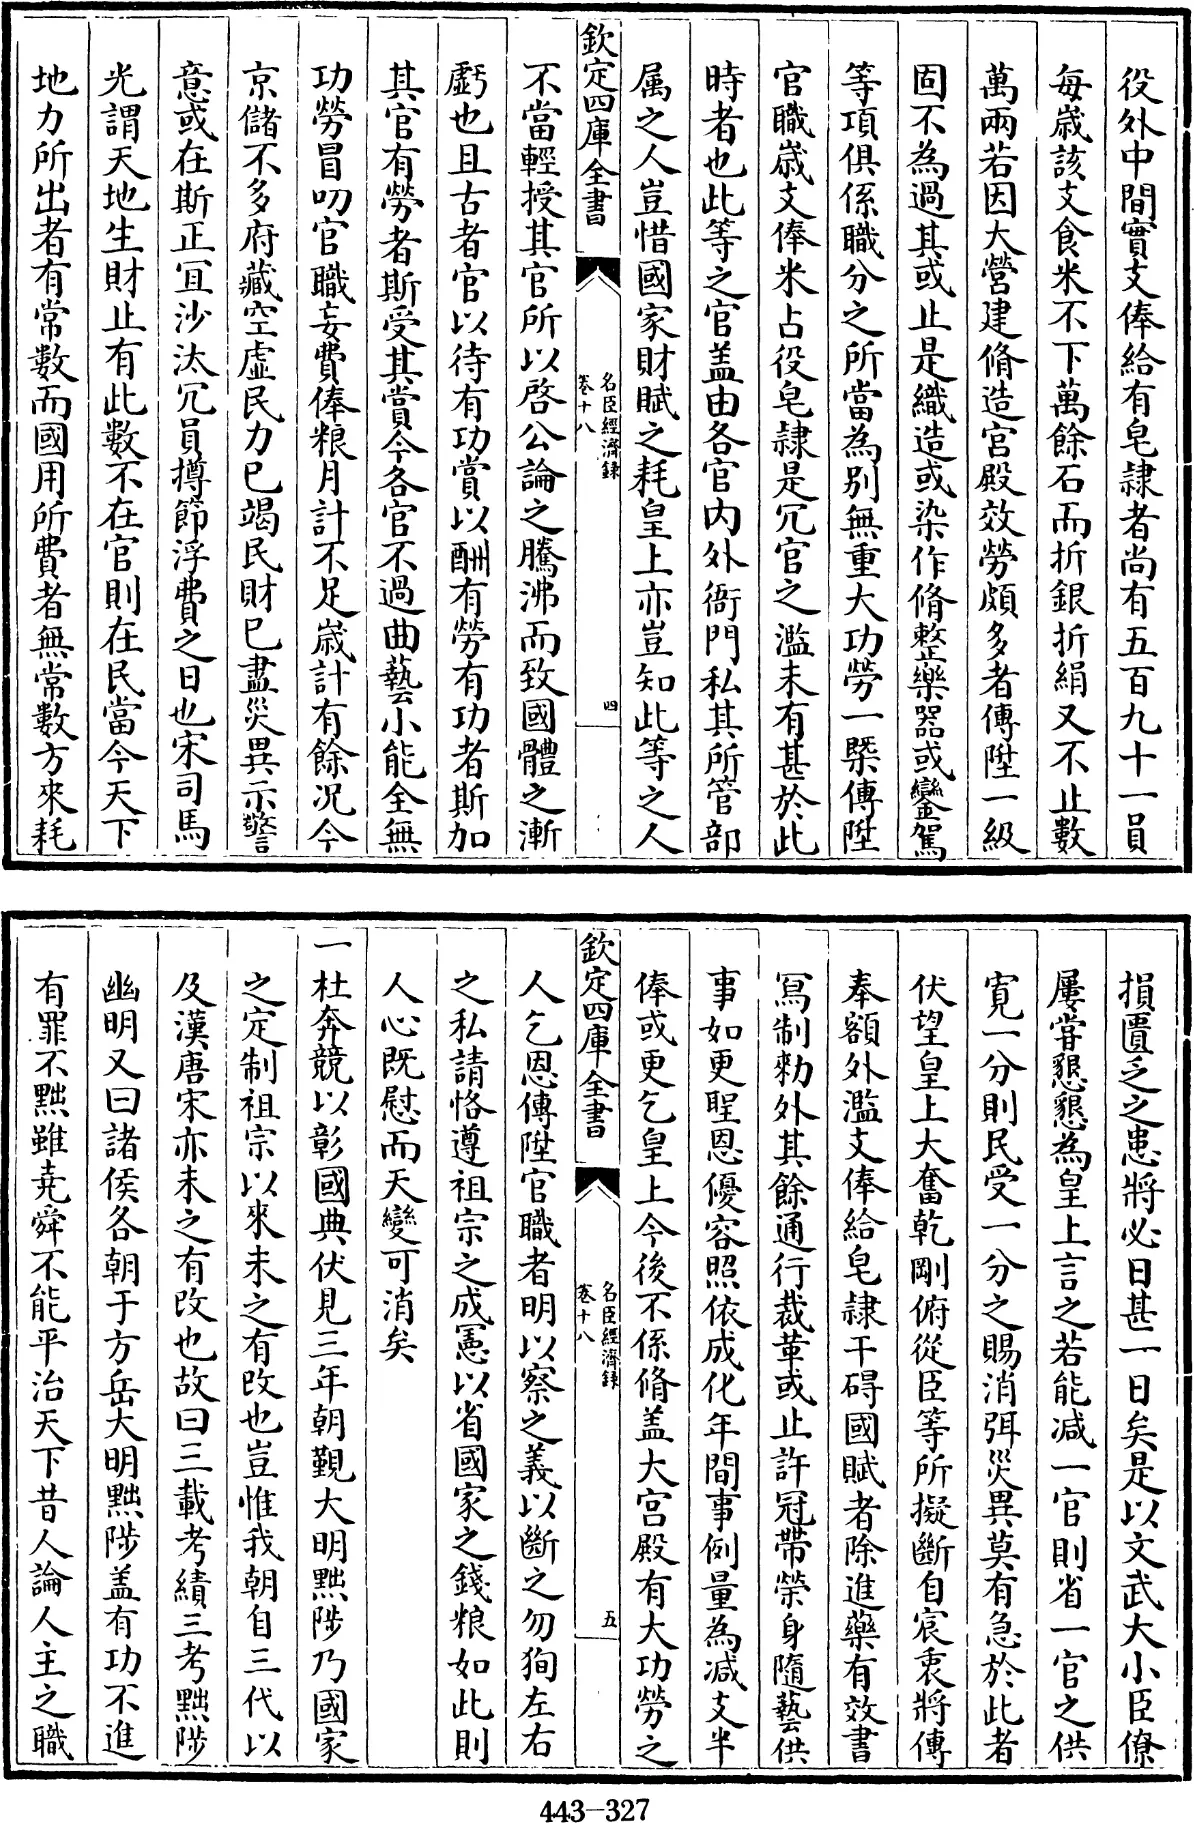 役外中間實支俸給有皂隷者尚有五百九十一員
每嵗該支食米不下萬餘石而折銀折絹又不止數
萬兩若因大營建脩造宮殿效勞頗多者傳陞一級
固不為過其或止是織造或染作脩整藥器或鑾駕
等項俱係職分之所當為別無重大功勞一槩傳陞
官職嵗支俸米占役皂隷是冗官之濫未有甚於此
時者也此等之官盖由各官内外衙門私其所管部
属之人豈惜國家財賦之耗皇上亦豈知此等之人
欽定四庫全書
名臣經濟録
卷十八
四
不當輕授其官所以啓公論之騰沸而致國體之漸
虧也且古者官以待有功賞以酬有勞有功者斯加
其官有勞者斯受其賞今各官不過曲藝小能全無
功勞冒叨官職妄費俸粮月計不足嵗計有餘况今
京儲不多府藏空虚民力已竭民財已盡災異示警
意或在斯正宜沙汰冗員撙節浮費之日也宋司馬
光謂天地生財止有此數不在官則在民當今天下
地力所出者有常數而國用所費者無常數方來耗
損匱乏之患將必日甚一日矣是以文武大小臣僚
屢甞懇懇為皇上言之若能减一官則省一官之供
寛一分則民受一分之賜消弭災異莫有急於此者
伏望皇上大奮乾剛俯從臣等所擬斷自宸衷將傳
奉額外濫支俸給皂隷干碍國賦者除進藥有效書
寫制勑外其餘通行裁革或止許冠帶榮身隨藝供
事如更聖恩優容照依成化年間事例量為减支半
俸或更乞皇上今後不係脩盖大宫殿有大功勞之
欽定四庫全書
名臣經濟録
卷十八
五
人乞恩傳陞官職者明以察之義以斷之勿狥左右
之私請恪遵祖宗之成憲以省國家之錢粮如此則
人心既慰而天變可消矣
一杜奔競以彰國典伏見三年朝覲大明黜陟乃國家
之定制祖宗以來未之有改也豈惟我朝自三代以
及漢唐宋亦未之有改也故曰三載考績三考黜陟
幽明又曰諸侯各朝于方岳大明黜陟盖有功不進
有罪不黜雖堯舜不能平治天下昔人論人主之職
443-327